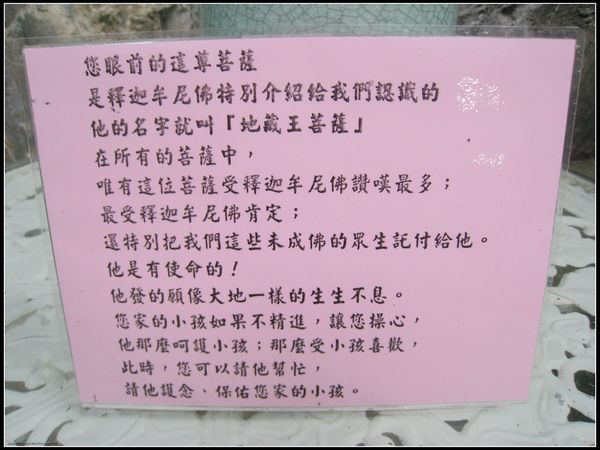 您眼前的這尊菩薩
是釋迦牟尼佛特別介紹給我們認識的
他的名字就叫『地藏王菩薩』
在所有的菩薩中，
唯有這位菩薩受釋迦牟尼佛讚嘆最多；
最受釋迦牟尼佛肯定；
還特別把我們這些未成佛的眾生託付給他。
他是有使命的！
他發的願像大地一樣的生生不息。
您家的小孩如果不精進，讓您操心，
他那麼呵護小孩；那麼受小孩喜歡，
此時，您可以請他幫忙，
請他護念、保佑您家的小孩。